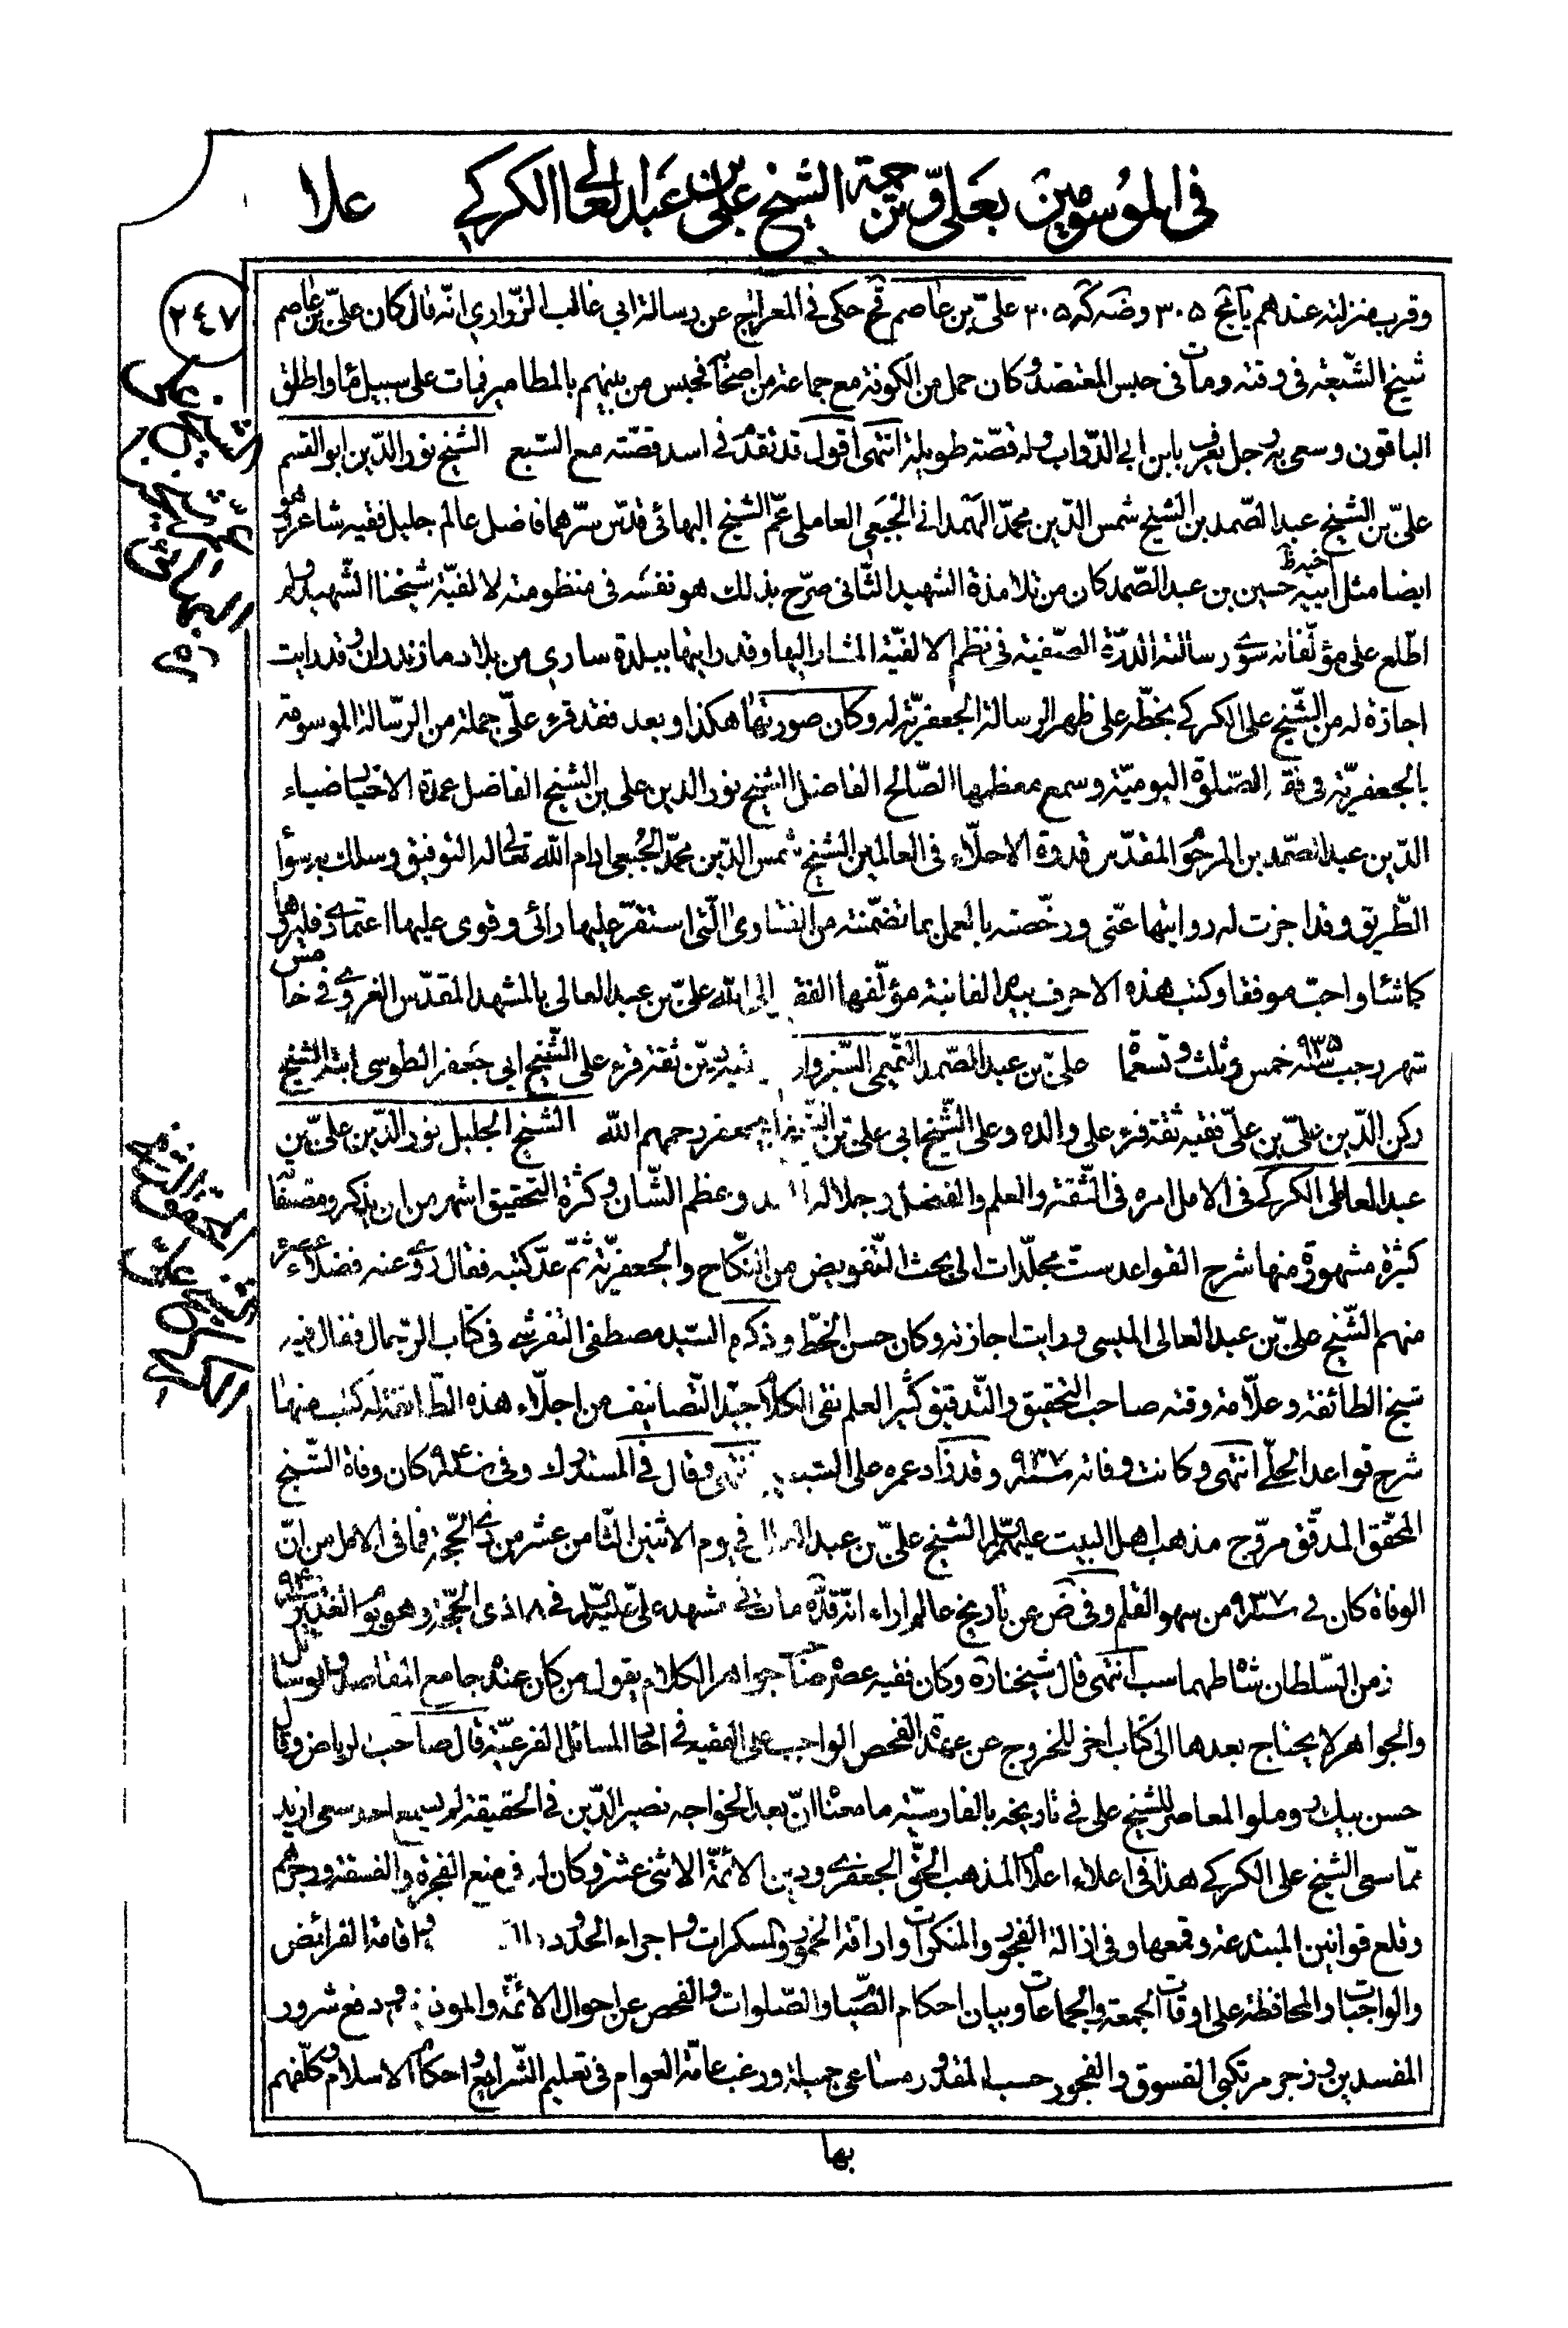 في الموسومين بعلي وترجمة الشيخ علي بن عبد العالي الكركي علا
٢٤٧
وقرب منزلته عندهم يا نج ٣٠٥ وضه كه ٣٠٥ علي بن عاصم قح حكى في المعراج عن رسالة ابي غالب الزراري انه قال كان علي بن عاصم
شيخ الشيعة في وقته ومات في حبس المعتضد وكان حمل من الكوفة مع جماعة من اصحابنا فحبس من بينهم بالمطامير فمات على سبيل ماء واطلق
الباقون وسعى به رجل يعرف بابن ابي الدواب وله قصة طويلة انتهى اقول قد تقدم في اسد قصته مع السبع الشيخ نور الدين ابو القسم
علي بن الشيخ عبد الصمد بن الشيخ شمس الدين محمد الهمداني الجبعي العاملي عم الشيخ البهائي قدس سرهما فاضل عالم جليل فقيه شاعر وهو
ايضا مثل اخيه حسين بن عبد الصمد كان من تلامذة الشهيد الثاني صرح بذلك هو نفسه في منظومته لالفية شيخنا الشهيد ولم
اطلع على مؤلفاته سوى رسالته الدرة الصفية في نظم الالفية المشار اليها وقد رايتها ببلدة ساري من بلاد مازندران وقد رايت
اجازة له من الشيخ علي الكركي بخطه على ظهر الرسالة الجعفرية له وكان صورتها هكذا وبعد فقد قرء علي جملة من الرسالة الموسومة
بالجعفرية في فقه الصلوة اليومية وسمع معظمها الصالح الفاضل الشيخ نور الدين علي بن الشيخ الفاضل عمدة الاخيار ضياء
الدين عبد الصمد بن المرحوم المقدس قدوة الاجلاء في العالمين الشيخ شمس الدين محمد الجبعي ادام الله تعالى له التوفيق وسلك به سواء
الطريق وقد اجزت له روايتها عني ورخصته بالعمل بما تضمنته من الفتاوى التي استقر عليها رائي وقوى عليها اعتمادي فليروها
كما شاء واحب موفقا وكتب هذه الاحرف بيده الفانية مؤلفها الفقير الى الله علي بن عبد العالي بالمشهد المقدس الغروي في خامس
شهر رجب سنة ٩٣٥ خمس وثلث وتسعمأة علي بن عبد الصمد التميمي السبزواري دين ثقة قرء على الشيخ ابي جعفر الطوسي ابنه الشيخ
ركن الدين علي بن علي فقيه ثقة قرء على والده وعلى الشيخ ابي علي بن الشيخ ابي جعفر رحمهم الله الشيخ الجليل نور الدين علي بن
عبد العالي الكركي في الامل امره في الثقة والعلم والفضل وجلالة القدر وعظم الشان وكثرة التحقيق اشهر من ان يذكر ومصنفاته
كثيرة مشهورة منها شرح القواعد ست مجلدات الى بحث التفويض من النكاح والجعفرية ثم عد كتبه فقال روى عنه فضلاء عصره
منهم الشيخ علي بن عبد العالي الميسي ورايت اجازته وكان حسن الخط وذكره السيد مصطفى التفرشي في كتاب الرجال فقال فيه
شيخ الطائفة وعلامة وقته صاحب التحقيق والتدقيق كثير العلم نقي الكلام جيد التصانيف من اجلاء هذه الطائفة له كتب منها
شرح قواعد الحلي انتهى وكانت وفاته سنة ٩٣٧ وقد زاد عمره على السبعين انتهى وقال في المستدرك وفي سنة ٩٤٠ كان وفاة الشيخ
المحقق المدقق مروج مذهب اهل البيت عليهم السلام الشيخ علي بن عبد العالي في يوم الاثنين الثامن عشر من ذي الحجة فما في الامل من ان
الوفاة كان في سنة ٩٣٧ من سهو القلم وفي ض عن تاريخ عالم اراء انه قده مات في مشهد علي عليه السلام في ١٨ ذي الحجة وهو يوم الغدير سنة ٩٤٠
زمن السلطان شاه طهماسب انتهى قال شيخنا ره وكان فقيه عصره صاحب جواهر الكلام يقول من كان عنده جامع المقاصد والوسائل
والجواهر لا يحتاج بعدها الى كتاب اخر للخروج عن عهدة الفحص الواجب على الفقيه في احاد المسائل الفرعية قال صاحب الرياض وقال
حسن بيك روملو المعاصر للشيخ علي في تاريخه بالفارسية ما معناه ان بعد الخواجه نصير الدين في الحقيقة لم يسع احد سعى ازيد
مما سعى الشيخ علي الكركي هذا في اعلاء اعلام المذهب الحق الجعفري ودين الائمة الاثنى عشر وكان له في منع الفجرة والفسقة وزجرهم
وقلع قوانين المبتدعة وقمعها وفي ازالة الفجور والمنكرات واراقة الخمور والمسكرات واجراء الحدود واقامة الفرائض
والواجبات والمحافظة على اوقات الجمعة والجماعات وبيان احكام الصيام والصلوات والفحص عن احوال الائمة والموذنين ودفع شرور
المفسدين وزجر مرتكبي الفسوق والفجور حسب المقدور مساعي جميلة ورغب عامة العوام في تعليم الشرايع واحكام الاسلام وكلفهم
بها